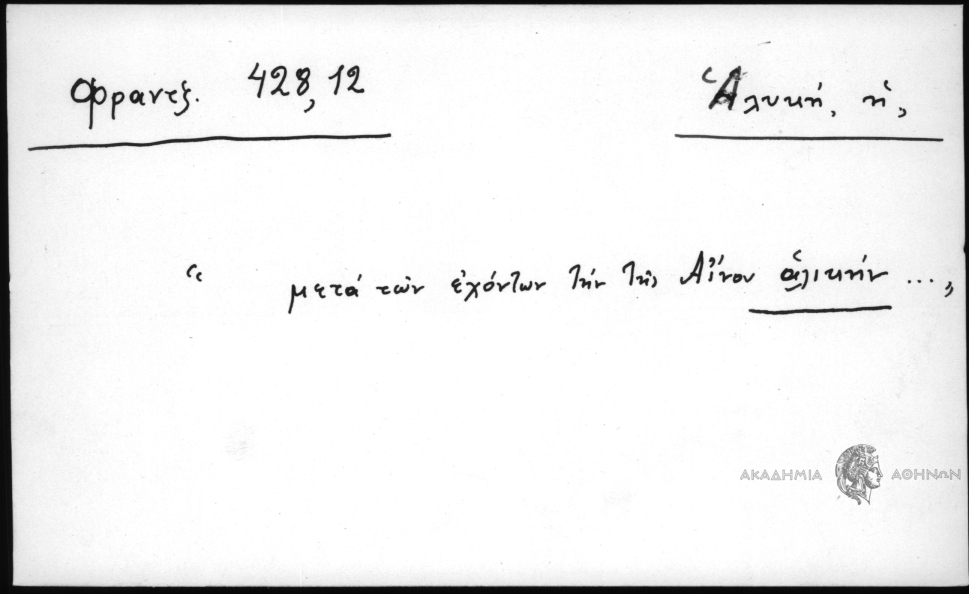 Φραντζ. 428,12
Ἁλυκή, ἡ,
“ μετά τῶν ἐχόντων τήν τῆς Αἴνου ἁλικήν ...,
ΑΚΑΔΗΜΙΑ ΑΘΗΝΩΝ